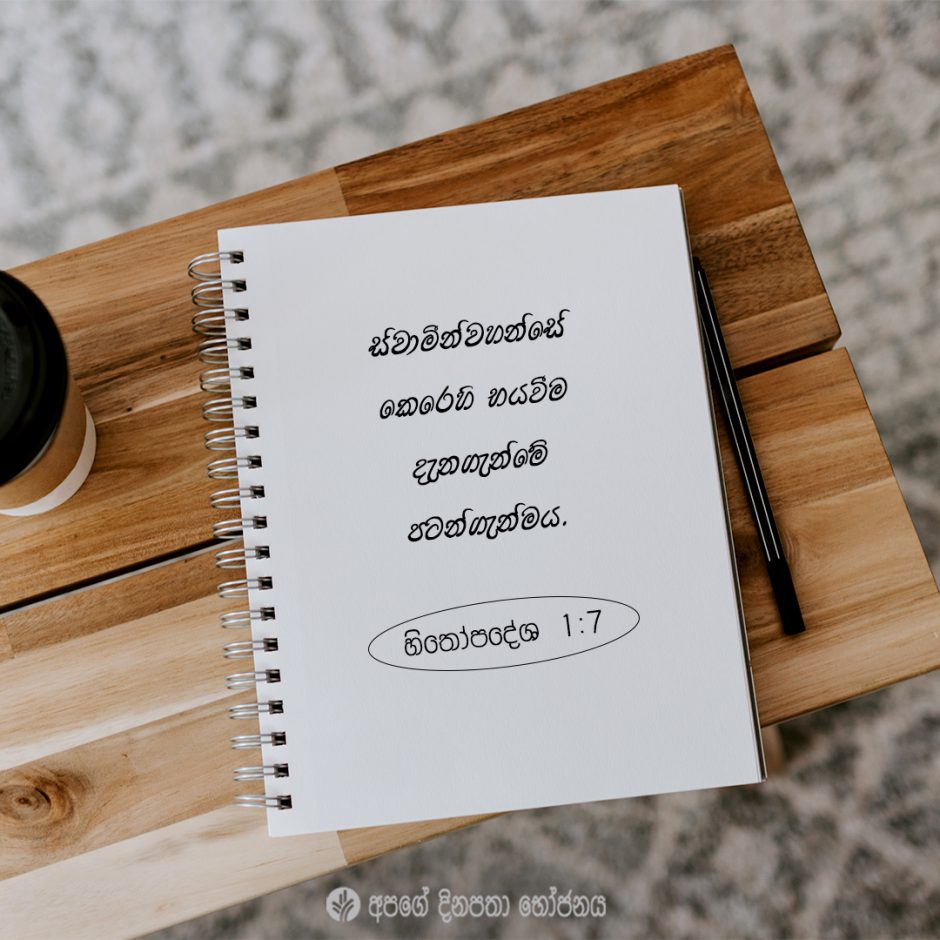 ස්වාමින්වහන්සේ
කෙරෙහි භයවීම
දැනගැන්මේ
පටන්ගැන්මය.
හිතෝපදේශ 1:7
අපගේ දිනපතා භෝජනය